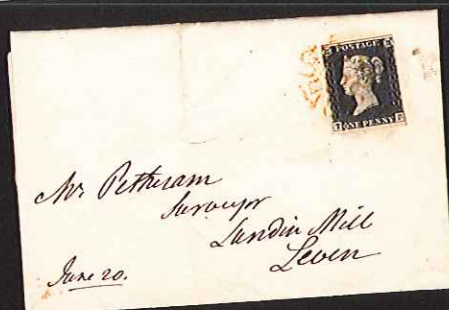 POSTAGE
ONE PENNY
Mr Petheram
Surveyor
Lundin Mill
Leven
June 20.